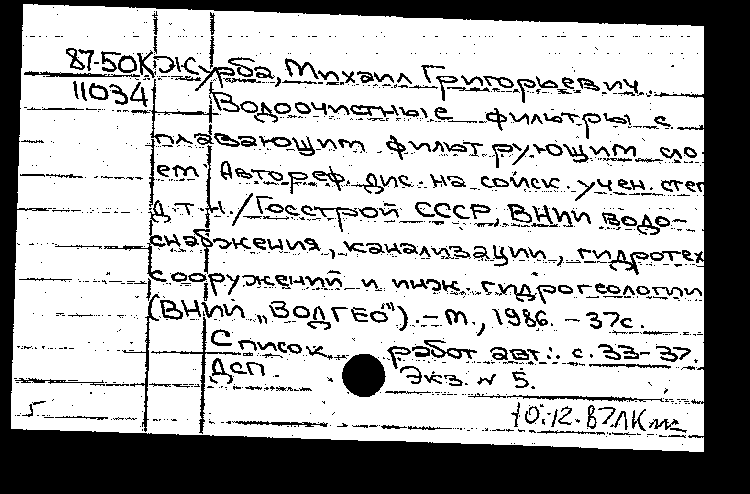 87-50К Журба, Михаил Григорьевич.
11034 Водоочистные фильтры с
плавающим фильтрующим сло-
ем: Автореф. дис. на соиск. учен. степ
д.т.н./Госстрой СССР, ВНИИ водо-
снабжения, канализации, гидротех
сооружений и инж. гидрогеологии
(ВНИИ "ВОДГЕО"). - М., 1986. - 37с.
Список работ авт.: с. 33-37.
Дсп. Экз. N 5.
10.12.87